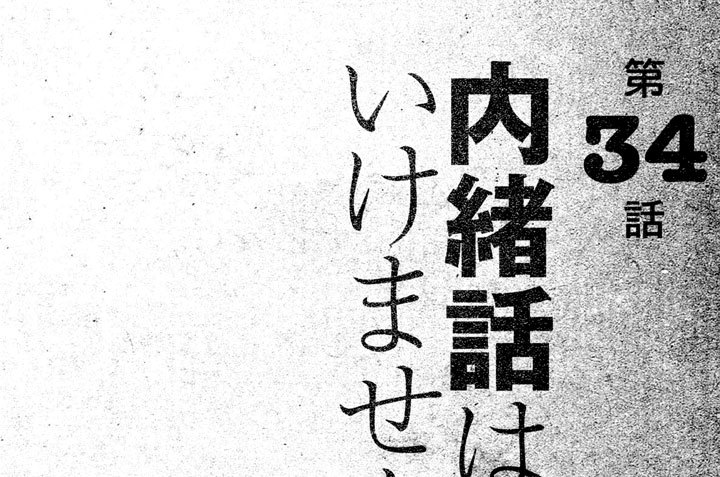 第34話
内緒話は
いけませ